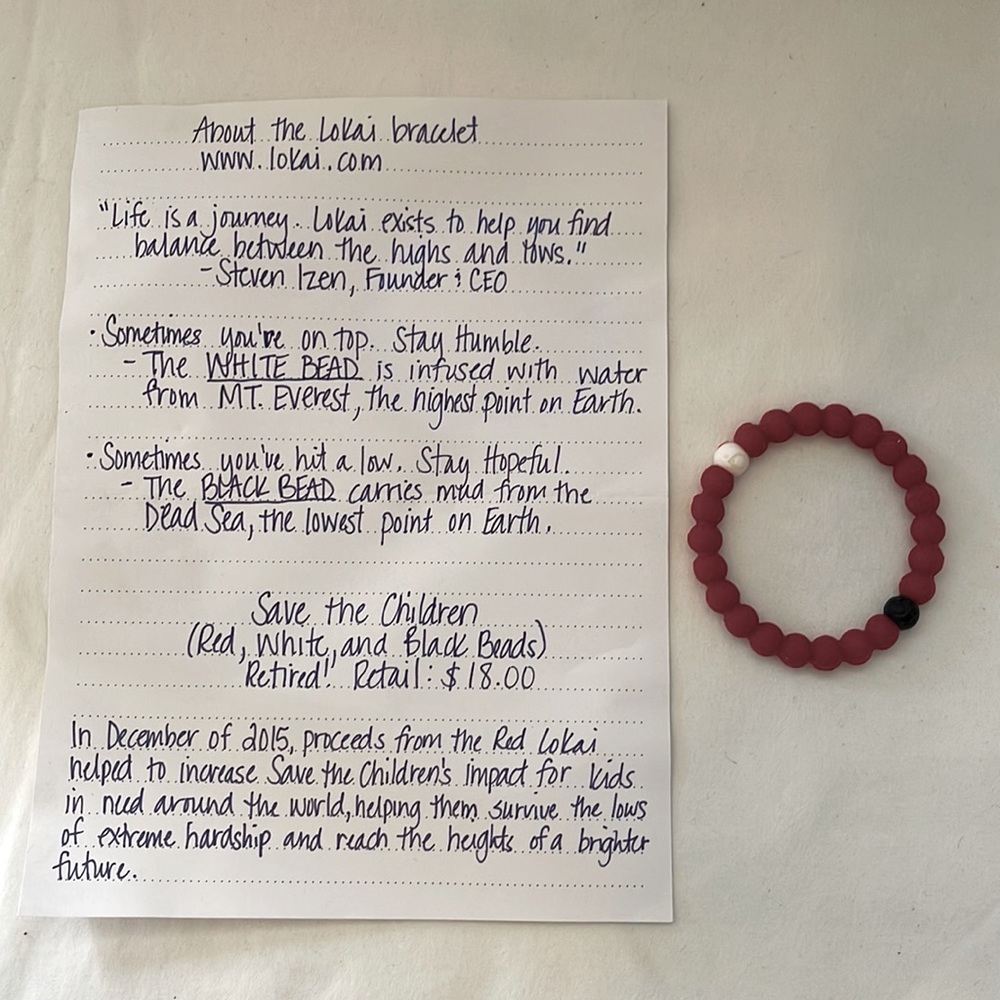 About the Lokai bracelet
www.lokai.com
"Life is a journey. Lokai exists to help you find
balance between the highs and lows."
- Steven Izen, Founder & CEO
• Sometimes you're on top. Stay Humble.
- The WHITE BEAD is infused with water
from MT. Everest, the highest point on Earth.
• Sometimes you've hit a low. Stay Hopeful.
- The BLACK BEAD carries mud from the
Dead Sea, the lowest point on Earth.
Save the Children
(Red, White, and Black Beads)
Retired! Retail: $18.00
In December of 2015, proceeds from the Red Lokai
helped to increase Save the Children's impact for kids
in need around the world, helping them survive the lows
of extreme hardship and reach the heights of a brighter
future.